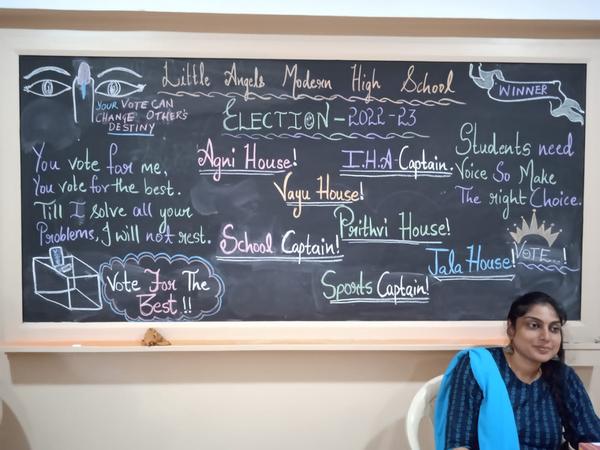 Little Angels Modern High School
WINNER
YOUR VOTE CAN
CHANGE OTHER'S
DESTINY
ELECTION - 2022-23
You vote for me,
You vote for the best.
Till I solve all your
Problems, I will not rest.
Agni House!
I.H.A Captain.
Vayu House!
Prithvi House!
School Captain!
Jala House!
Sports Captain!
Students need
Voice So Make
The right Choice.
VOTE...!
Vote For The
Best!!